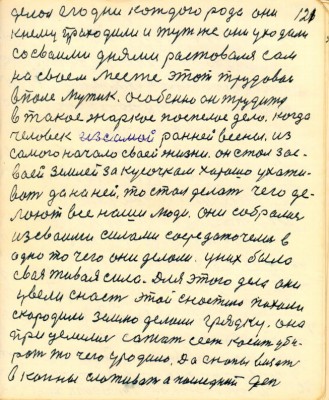 делол а годни кождого родо они 126
к нему приходили и тут же они уходили
со своими днями растовался сам
на своем месте этот трудовой
в поле мужик. особенно он трудится
в такое жаркое поспелое дело. когда
человек из самой ранней весны. из
самого начало своей жизни. он стол
своей землей за кусочком хорошо ухаживать
вот да на ней, то стол делат чего де-
лоют все наши люди. они собрались
из своими силами сосредоточены в
одно то чего они делоли. у них было
своя живая сила. Для этого дела они
завели снаст этой снастию пахали
скородили землю делоли грядку. она
при делилие сажат сеят косит уби-
рат то чего уродило. Да снопы вязат
в копны сложиват а последний